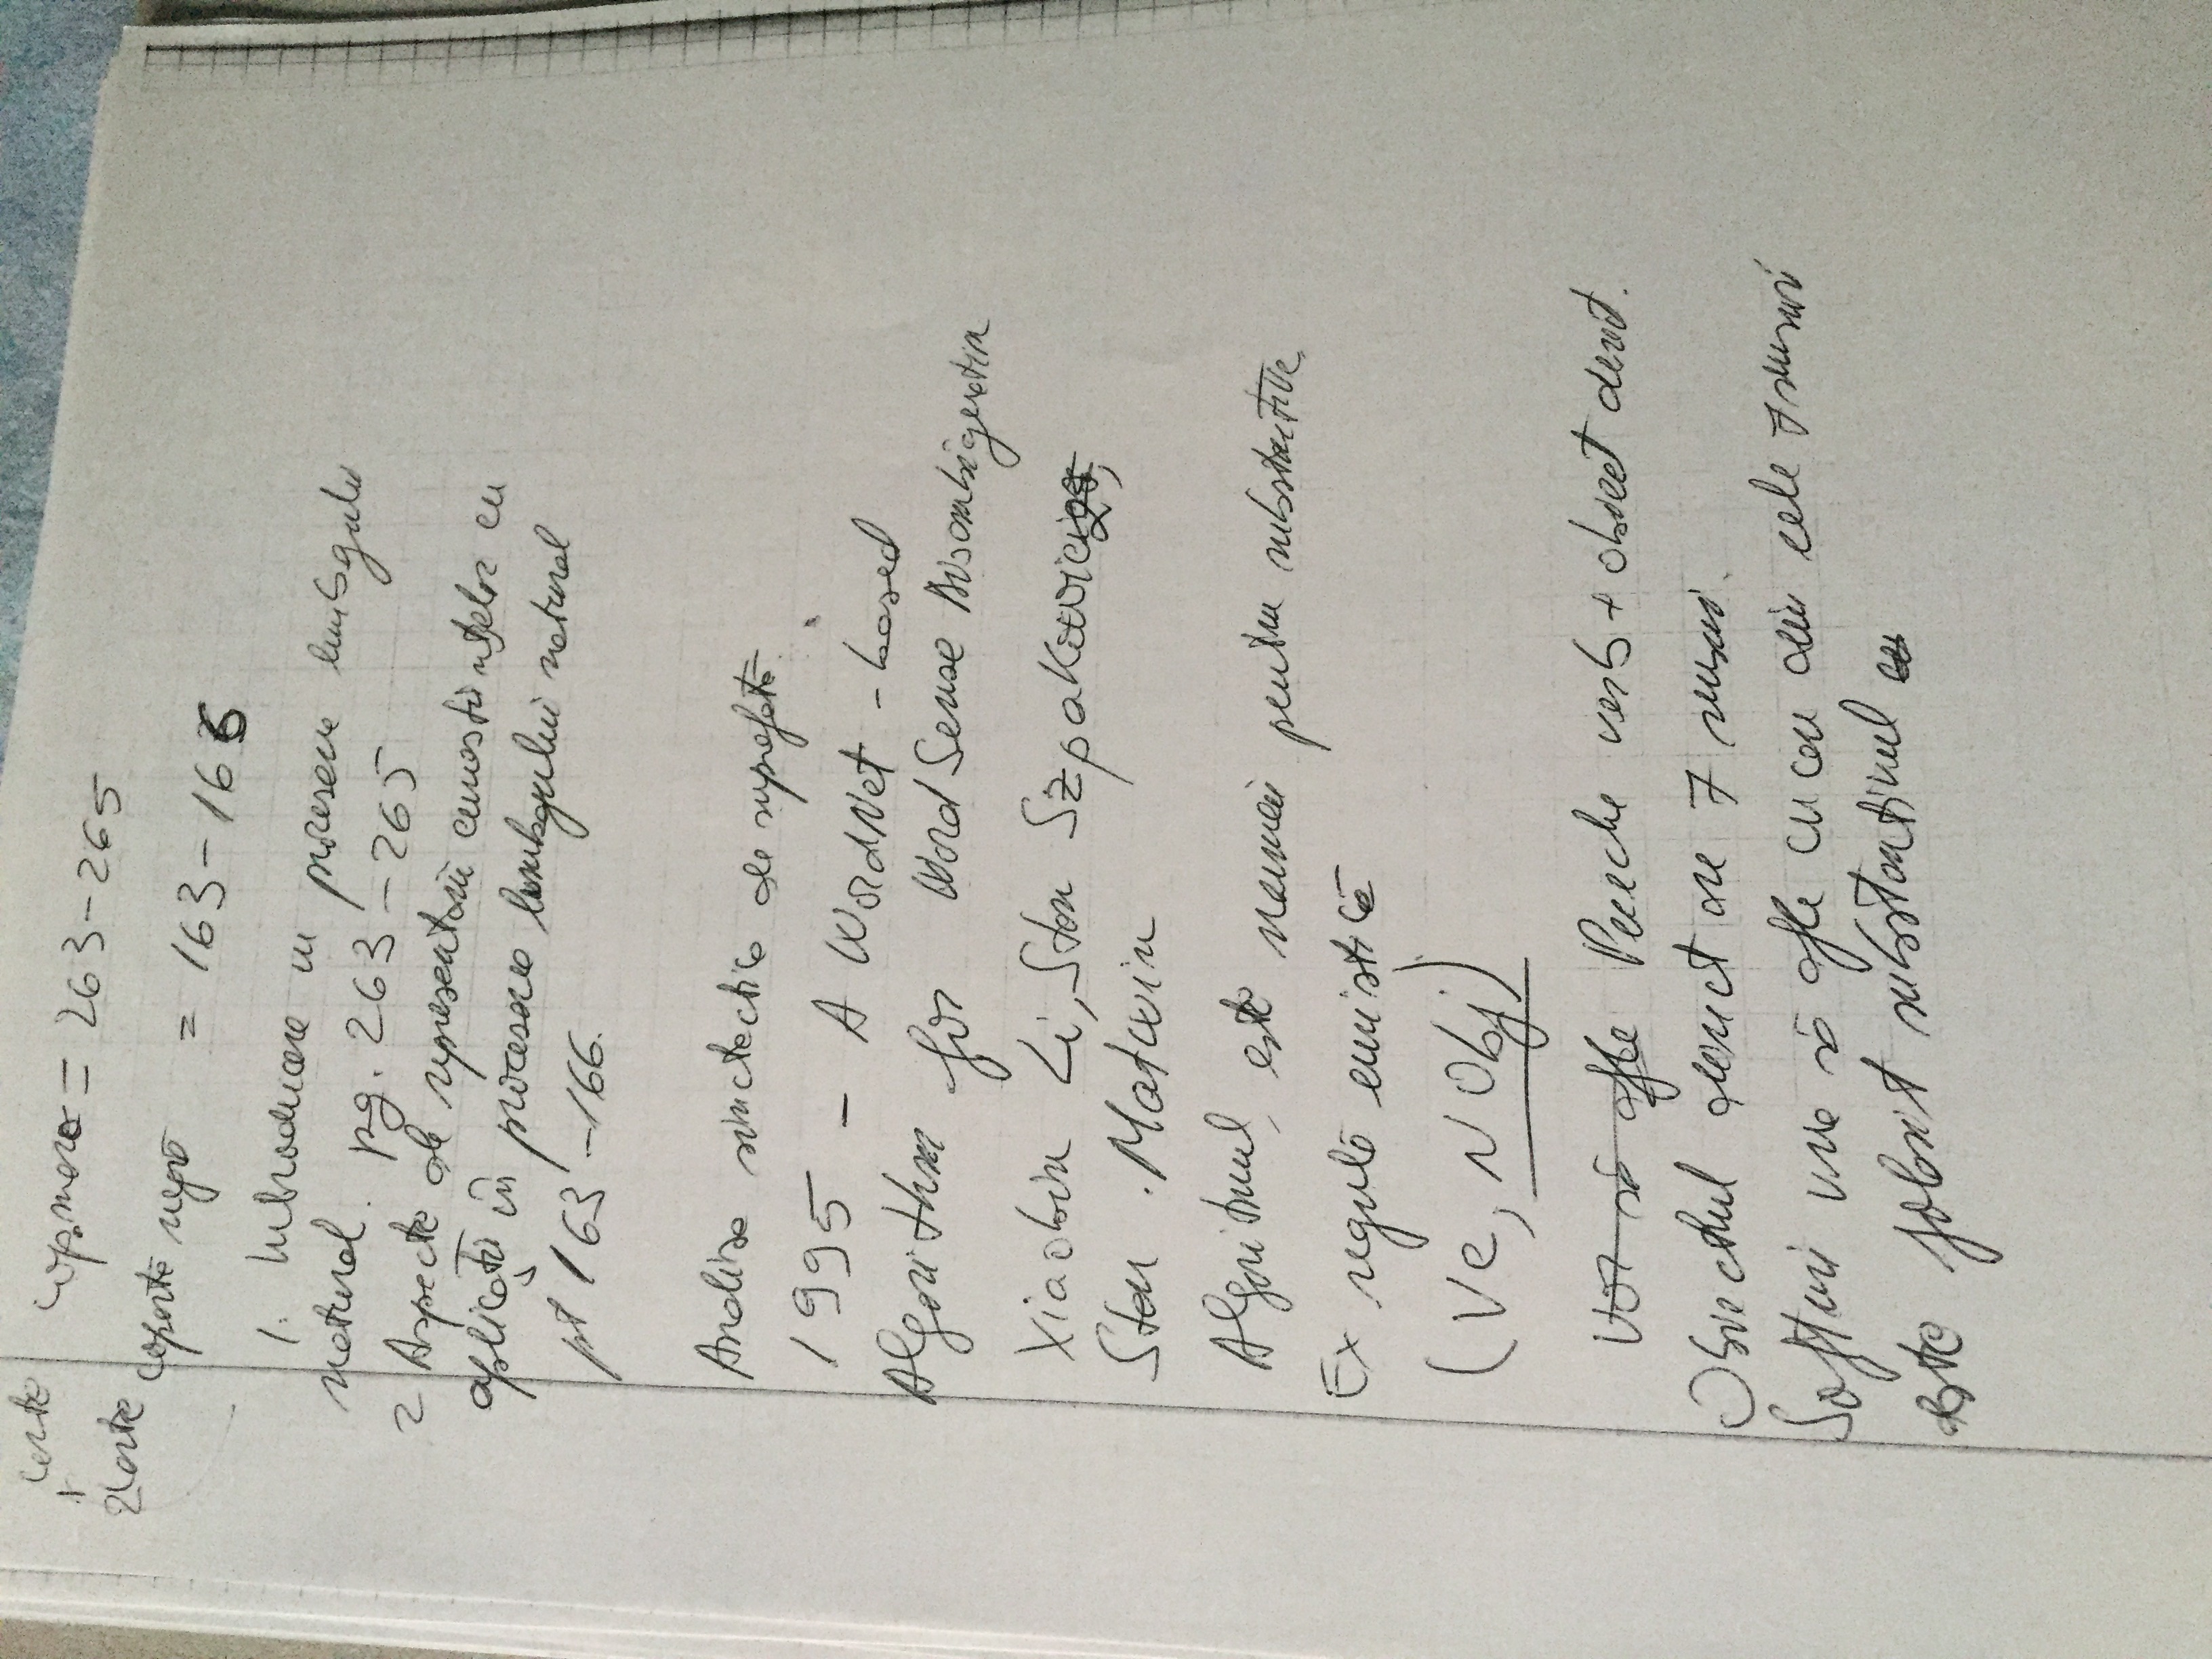 carte
1
2 carte
cop. maro = 263-265
copertă negră = 163-166
1. Introducere in procesare limbajului
natural. pg. 263-265
2 Aspecte ale reprezentării cunostiințelor cu
aplicații în procesarea limbajului natural
pt 163-166.
Analiza sinctectica de suprafată.
1995 - A WordNet-based
Algorithm for Word Sense Disambiguation
Xiaobin Li, Stan Szpakowicz,
Stan Matwin
Algoritmul este numai pentru substantive.
Ex regulă euristică
(Vc, NObj)
Vor să afle Pereche verb + obiect direct.
Obiectul direct are 7 sensuri.
Softuri vrea să afle cu care din cele 7 sensuri
este folosit substantivul